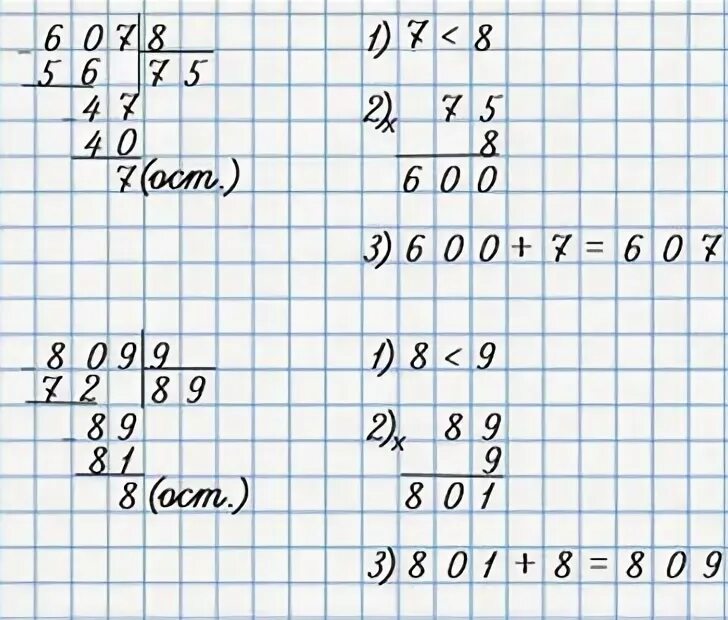 - 6 0 7 | 8
5 6 | 7 5
- 4 7
4 0
7 (ост.)
1) 7 < 8
2) x 7 5
8
6 0 0
3) 6 0 0 + 7 = 6 0 7
- 8 0 9 | 9
7 2 | 8 9
- 8 9
8 1
8 (ост.)
1) 8 < 9
2) x 8 9
9
8 0 1
3) 8 0 1 + 8 = 8 0 9